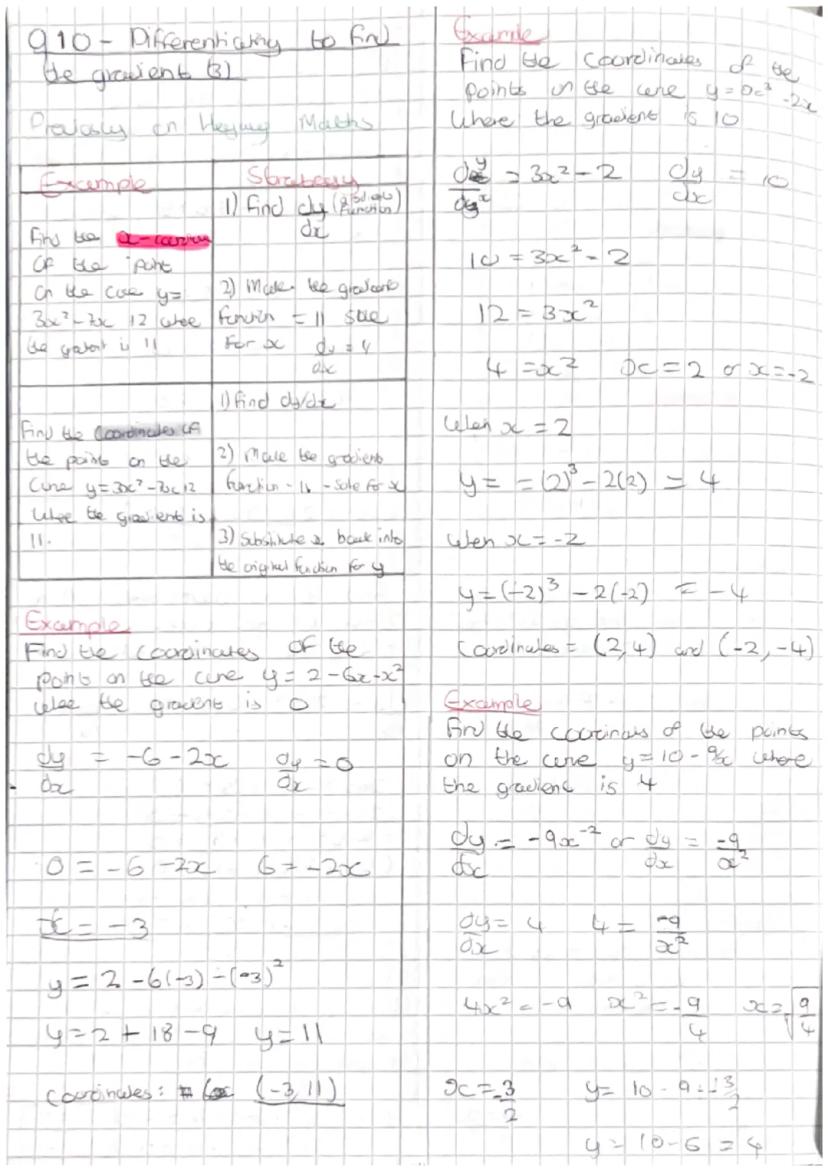 Q10 - Differentiating to find
the gradient (3)
Previously on Heying Maths
Example
Strategy
1) Find dy/dx (gradient function)
Find the x-coordinate
of the point
on the curve y=
3x² - 7x 12 where
the gradient is 11
2) Make the gradient
function = 11 solve
for x dy/dx = 4
Find the coordinates of
the points on the
curve y=3x²-7x12
where the gradient is
11.
1) find dy/dx
2) Make the gradient
function - 11 - solve for x
3) Substitute x back into
the original function for y
Example
Find the coordinates of the
point on the curve y = 2 - 6x - x²
where the gradient is 0
dy/dx = -6 - 2x dy/dx = 0
0 = -6 - 2x 6 = -2x
x = -3
y = 2 - 6(-3) - (-3)²
y = 2 + 18 - 9 y = 11
coordinates: (-3, 11)
Example
Find the coordinates of the
points on the curve y = x³ - 2x
where the gradient is 10
= 3x² - 2 dy/dx = 10
10 = 3x² - 2
12 = 3x²
4 = x² x = 2 or x = -2
When x = 2
y = = (2)³ - 2(2) = 4
when x = -2
y = (-2)³ - 2(-2) = -4
Coordinates = (2, 4) and (-2, -4)
Example
Find the coordinates of the points
on the curve y = 10 - 9/x where
the gradient is 4
dy/dx = -9x⁻² or dy/dx = -9/x²
dy/dx = 4 4 = -9/x²
4x² = -9 x² = -9/4 x = √9/4
x = -3/2 y = 10 - 9 ÷ 3/2
y = 10 - 6 = 4